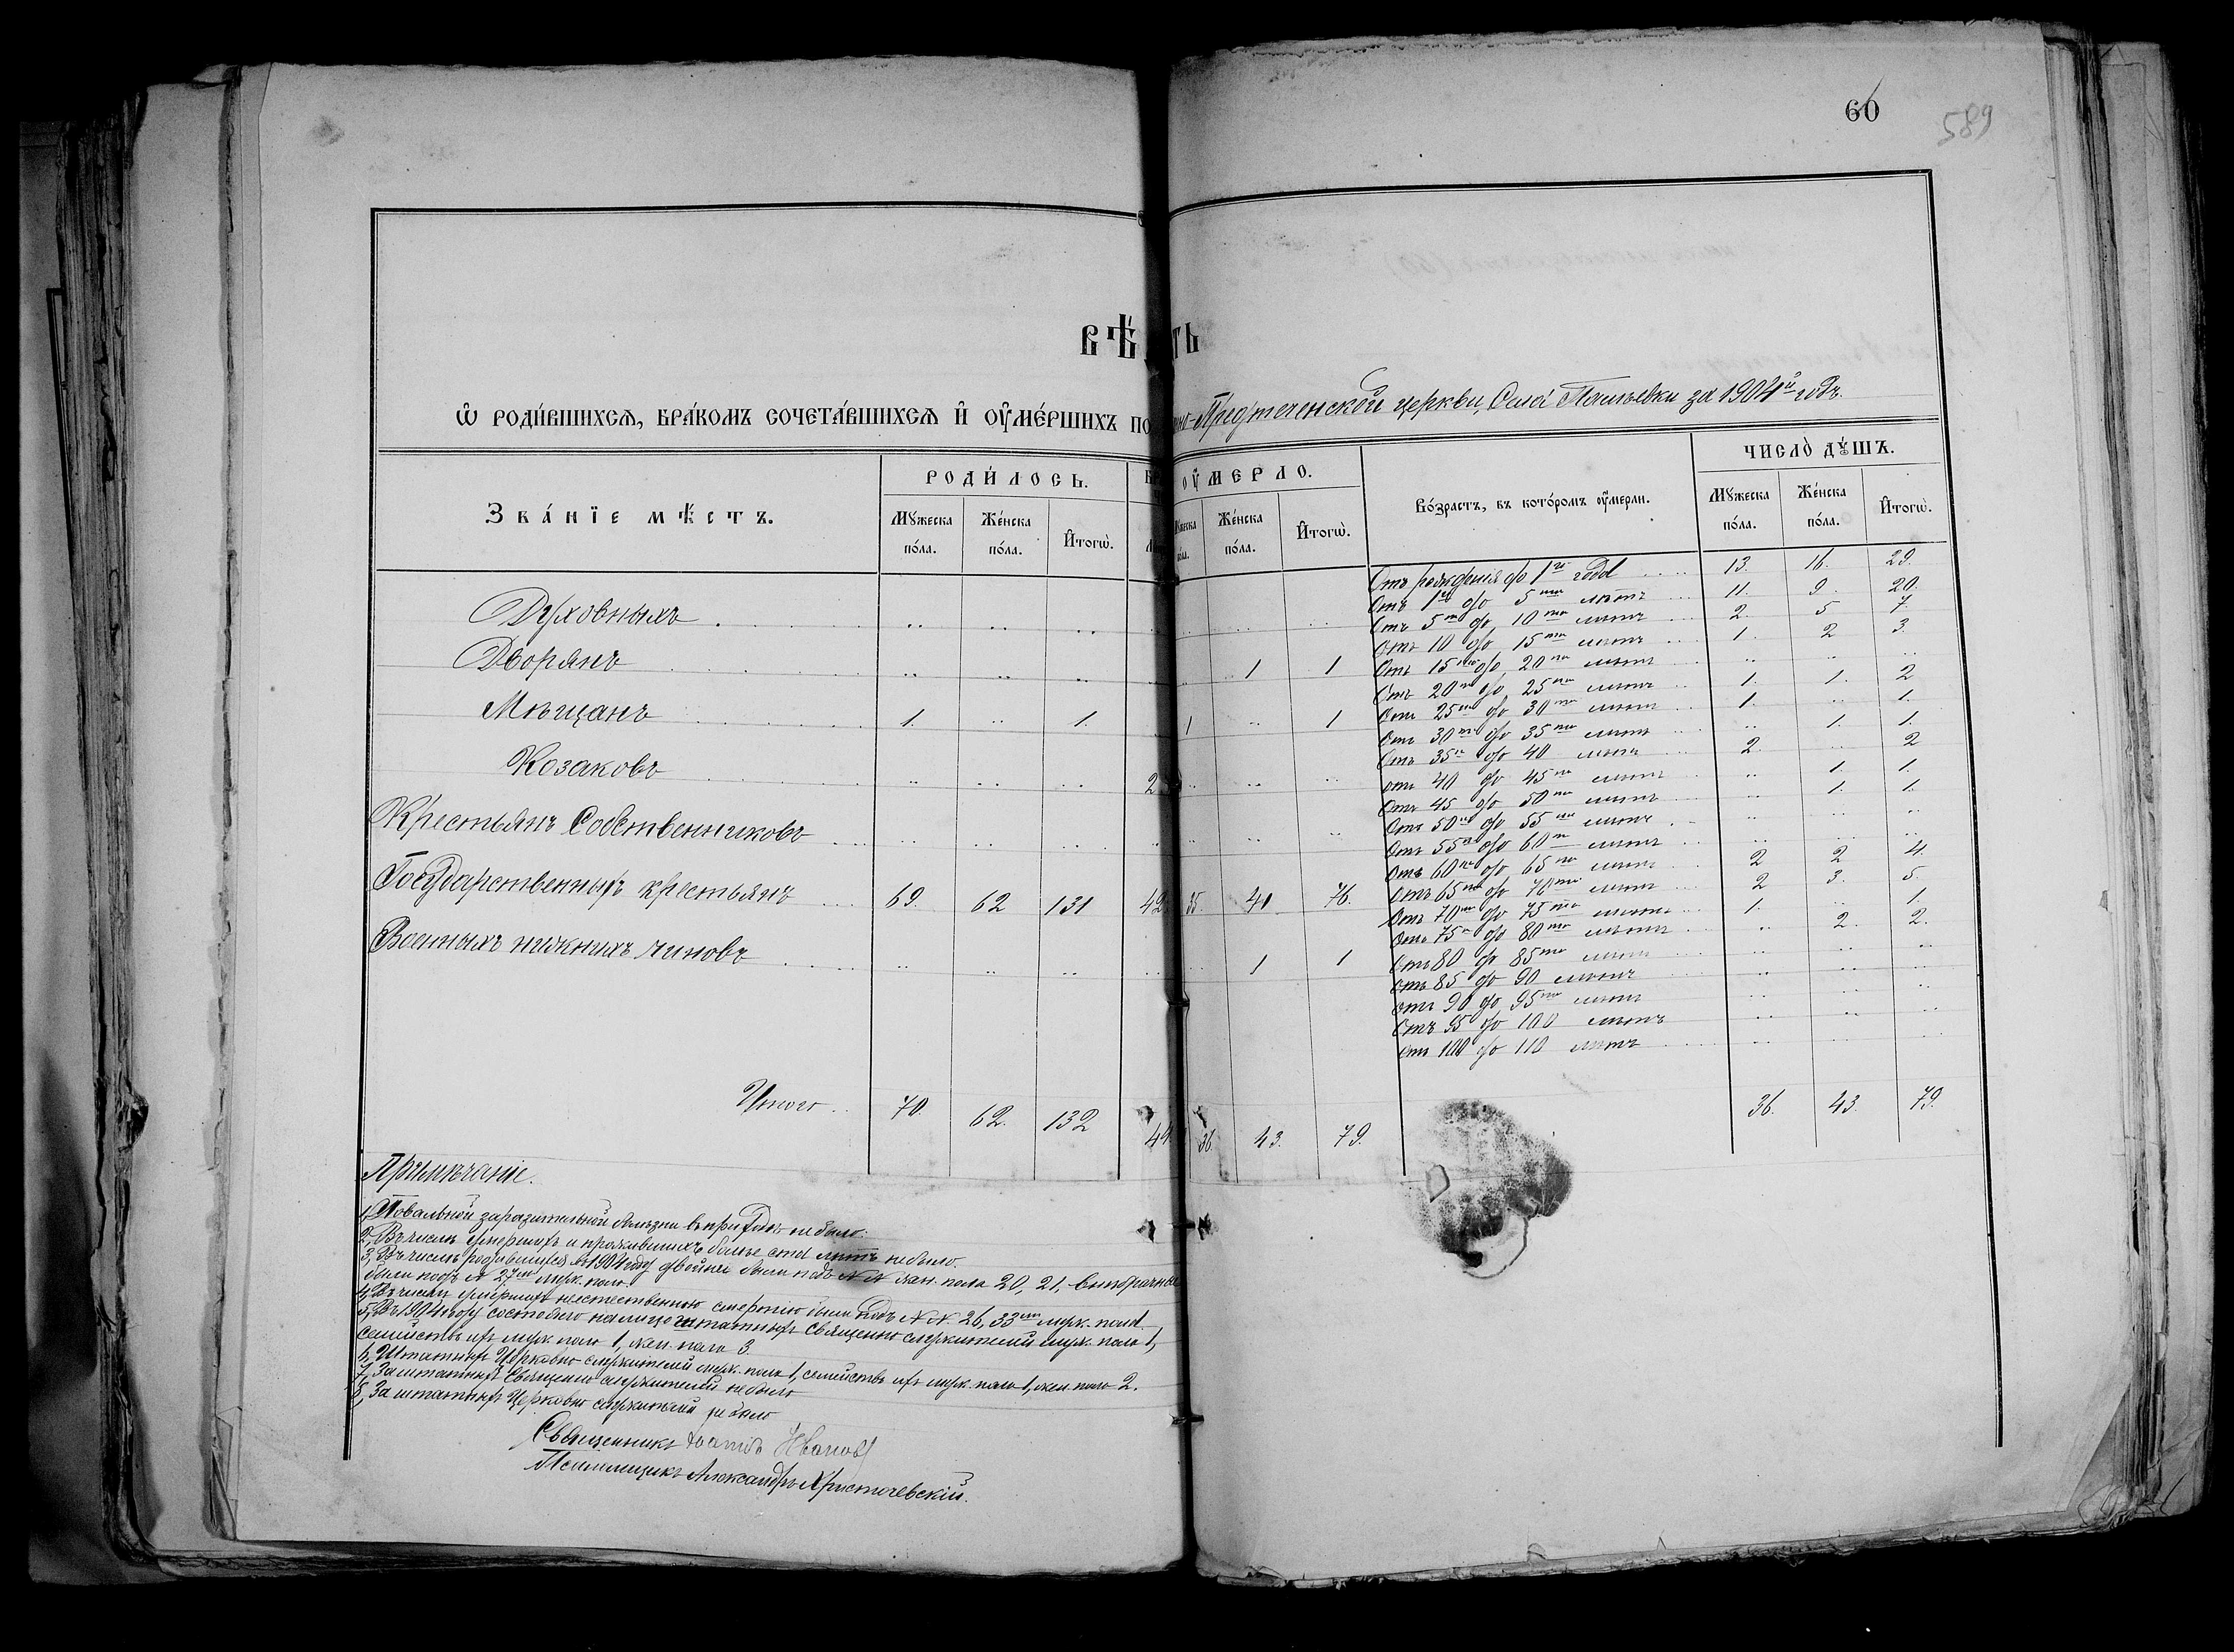 60
589
ВѢ ТЬ
Ѽ РОДИ́ВШИХСѦ, БРА́КОМЪ СОЧЕТА́ВШИХСѦ И҆ ОУ҆МЕ́РШИХЪ ПО Предтеченской церкви, Села за 1904й годъ.
Зва́нїе мѣ́стъ. РОДИ́ЛОСЬ. ОУ҆МЕРЛО. Во́зрастъ, въ кото́ромъ оу҆мерли. ЧИСЛО̀ ДꙊ́ШЪ.
Мꙋжеска по́ла. Же́нска по́ла. И҆тогѡ̀. Же́нска по́ла. И҆тогѡ̀. Мꙋжеска по́ла. Же́нска по́ла. И҆тогѡ̀.
Духовныхъ
Дворянъ 1 1
Мѣщанъ 1. 1. 1 1
Козаковъ 2
Крестьянъ Собственниковъ
Государственныхъ крестьянъ 69. 62 131 42 35. 41 76.
Военныхъ нижнихъ чиновъ 1 1
Итого 70. 62. 132 44 36. 43. 79.
Отъ рожденія до 1го года 13. 16. 29.
Отъ 1го до 5ти лѣтъ 11. 9. 20.
Отъ 5ти до 10ти лѣтъ 2. 5 7.
Отъ 10 до 15ти лѣтъ 1. 2 3.
Отъ 15ти до 20ти лѣтъ
Отъ 20ти до 25ти лѣтъ 1. 1. 2
Отъ 25ти до 30ти лѣтъ 1. 1.
Отъ 30ти до 35ти лѣтъ 1. 1.
Отъ 35ти до 40 лѣтъ 2. 2
отъ 40 до 45ти лѣтъ 1. 1.
Отъ 45 до 50ти лѣтъ 1. 1.
Отъ 50ти до 55ти лѣтъ
Отъ 55ти до 60ти лѣтъ
Отъ 60ти до 65ти лѣтъ 2 2 4.
Отъ 65ти до 70ти лѣтъ 2 3. 5.
Отъ 70ти до 75ти лѣтъ 1. 1
Отъ 75ти до 80ти лѣтъ 2. 2.
Отъ 80 до 85ти лѣтъ
отъ 85 до 90 лѣтъ
отъ 90 до 95ти лѣтъ
Отъ 95 до 100 лѣтъ
Отъ 100 до 110 лѣтъ
36. 43. 79.
Примѣчаніе.
1, Повальной заразительной болѣзни въ приходѣ не было.
2, Въ числѣ умершихъ и прожившихъ болѣе ста лѣтъ не было.
3, Въ числѣ родившихся въ 1904 году двойни были подъ №№ жен. пола 20, 21,
были подъ № 27мъ муж. пола.
4, Въ числѣ умершихъ неестественною смертію были подъ №№ 26, 33мъ муж. пола.
5, Въ 1904 году состояло на лицо штатныхъ Священно служителей муж. пола 1,
семействъ ихъ муж. пола 1, жен. пола 3.
6, Штатныхъ Церковно служителей муж. пола 1, семействъ ихъ муж. пола 1, жен. пола 2.
7, Заштатныхъ Священно служителей не было
8, Заштатныхъ Церковно служителей не было
Священникъ Іоаннъ Ивановъ
Псаломщикъ Александръ